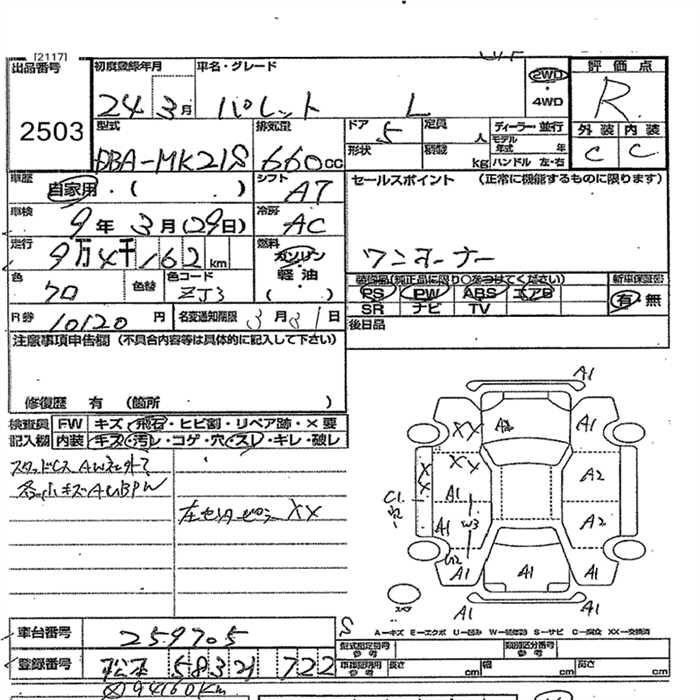 [2117]
出品番号 初度登録年月 車名・グレード 2WD 評価点
2503 24 3月 パレット L ・ 4WD R
型式 排気量 ドア 定員 ディーラー・並行 外装 内装
DBA-MK21S 660cc 5 人 モデル年式 年
形状 積載 kg ハンドル 左・右 C C
車歴 自家用・( ) シフト AT セールスポイント (正常に機能するものに限ります)
車検 9年3月(29日) 冷房 AC
走行 9万4千162km 燃料 ガソリン・軽油 ( ) ワンオーナー
色 クロ 色替 色コード ZJ3
装備品(純正品に限り○をつけてください) 新車保証書
PS PW ABS エアB 有・無
SR ナビ TV
R券 10120円 名変通知期限 3月31日 後日品
注意事項申告欄 (不具合内容等は具体的に記入して下さい)
修復歴 有 (箇所 )
検査員 FW キズ・飛石・ヒビ割・リペア跡・×要
記入欄 内装 キズ・汚レ・コゲ・穴・スレ・キレ・破レ
各小キズAUBPW
左センタピラーXX
A1
XX A2
XX XX A1 A2
C1 A1 W3 A2
A1 A1 A1
A1 A1
スペア
A-キズ E-エクボ U-凹み W-補修跡 S-サビ C-腐食 XX-交換済
車台番号 259705 型式指定番号 参考 類別区分番号 参考
登録番号 松本 583 2 1 722 車検証明用 参考 長さ cm 幅 cm 高さ cm
94160Km